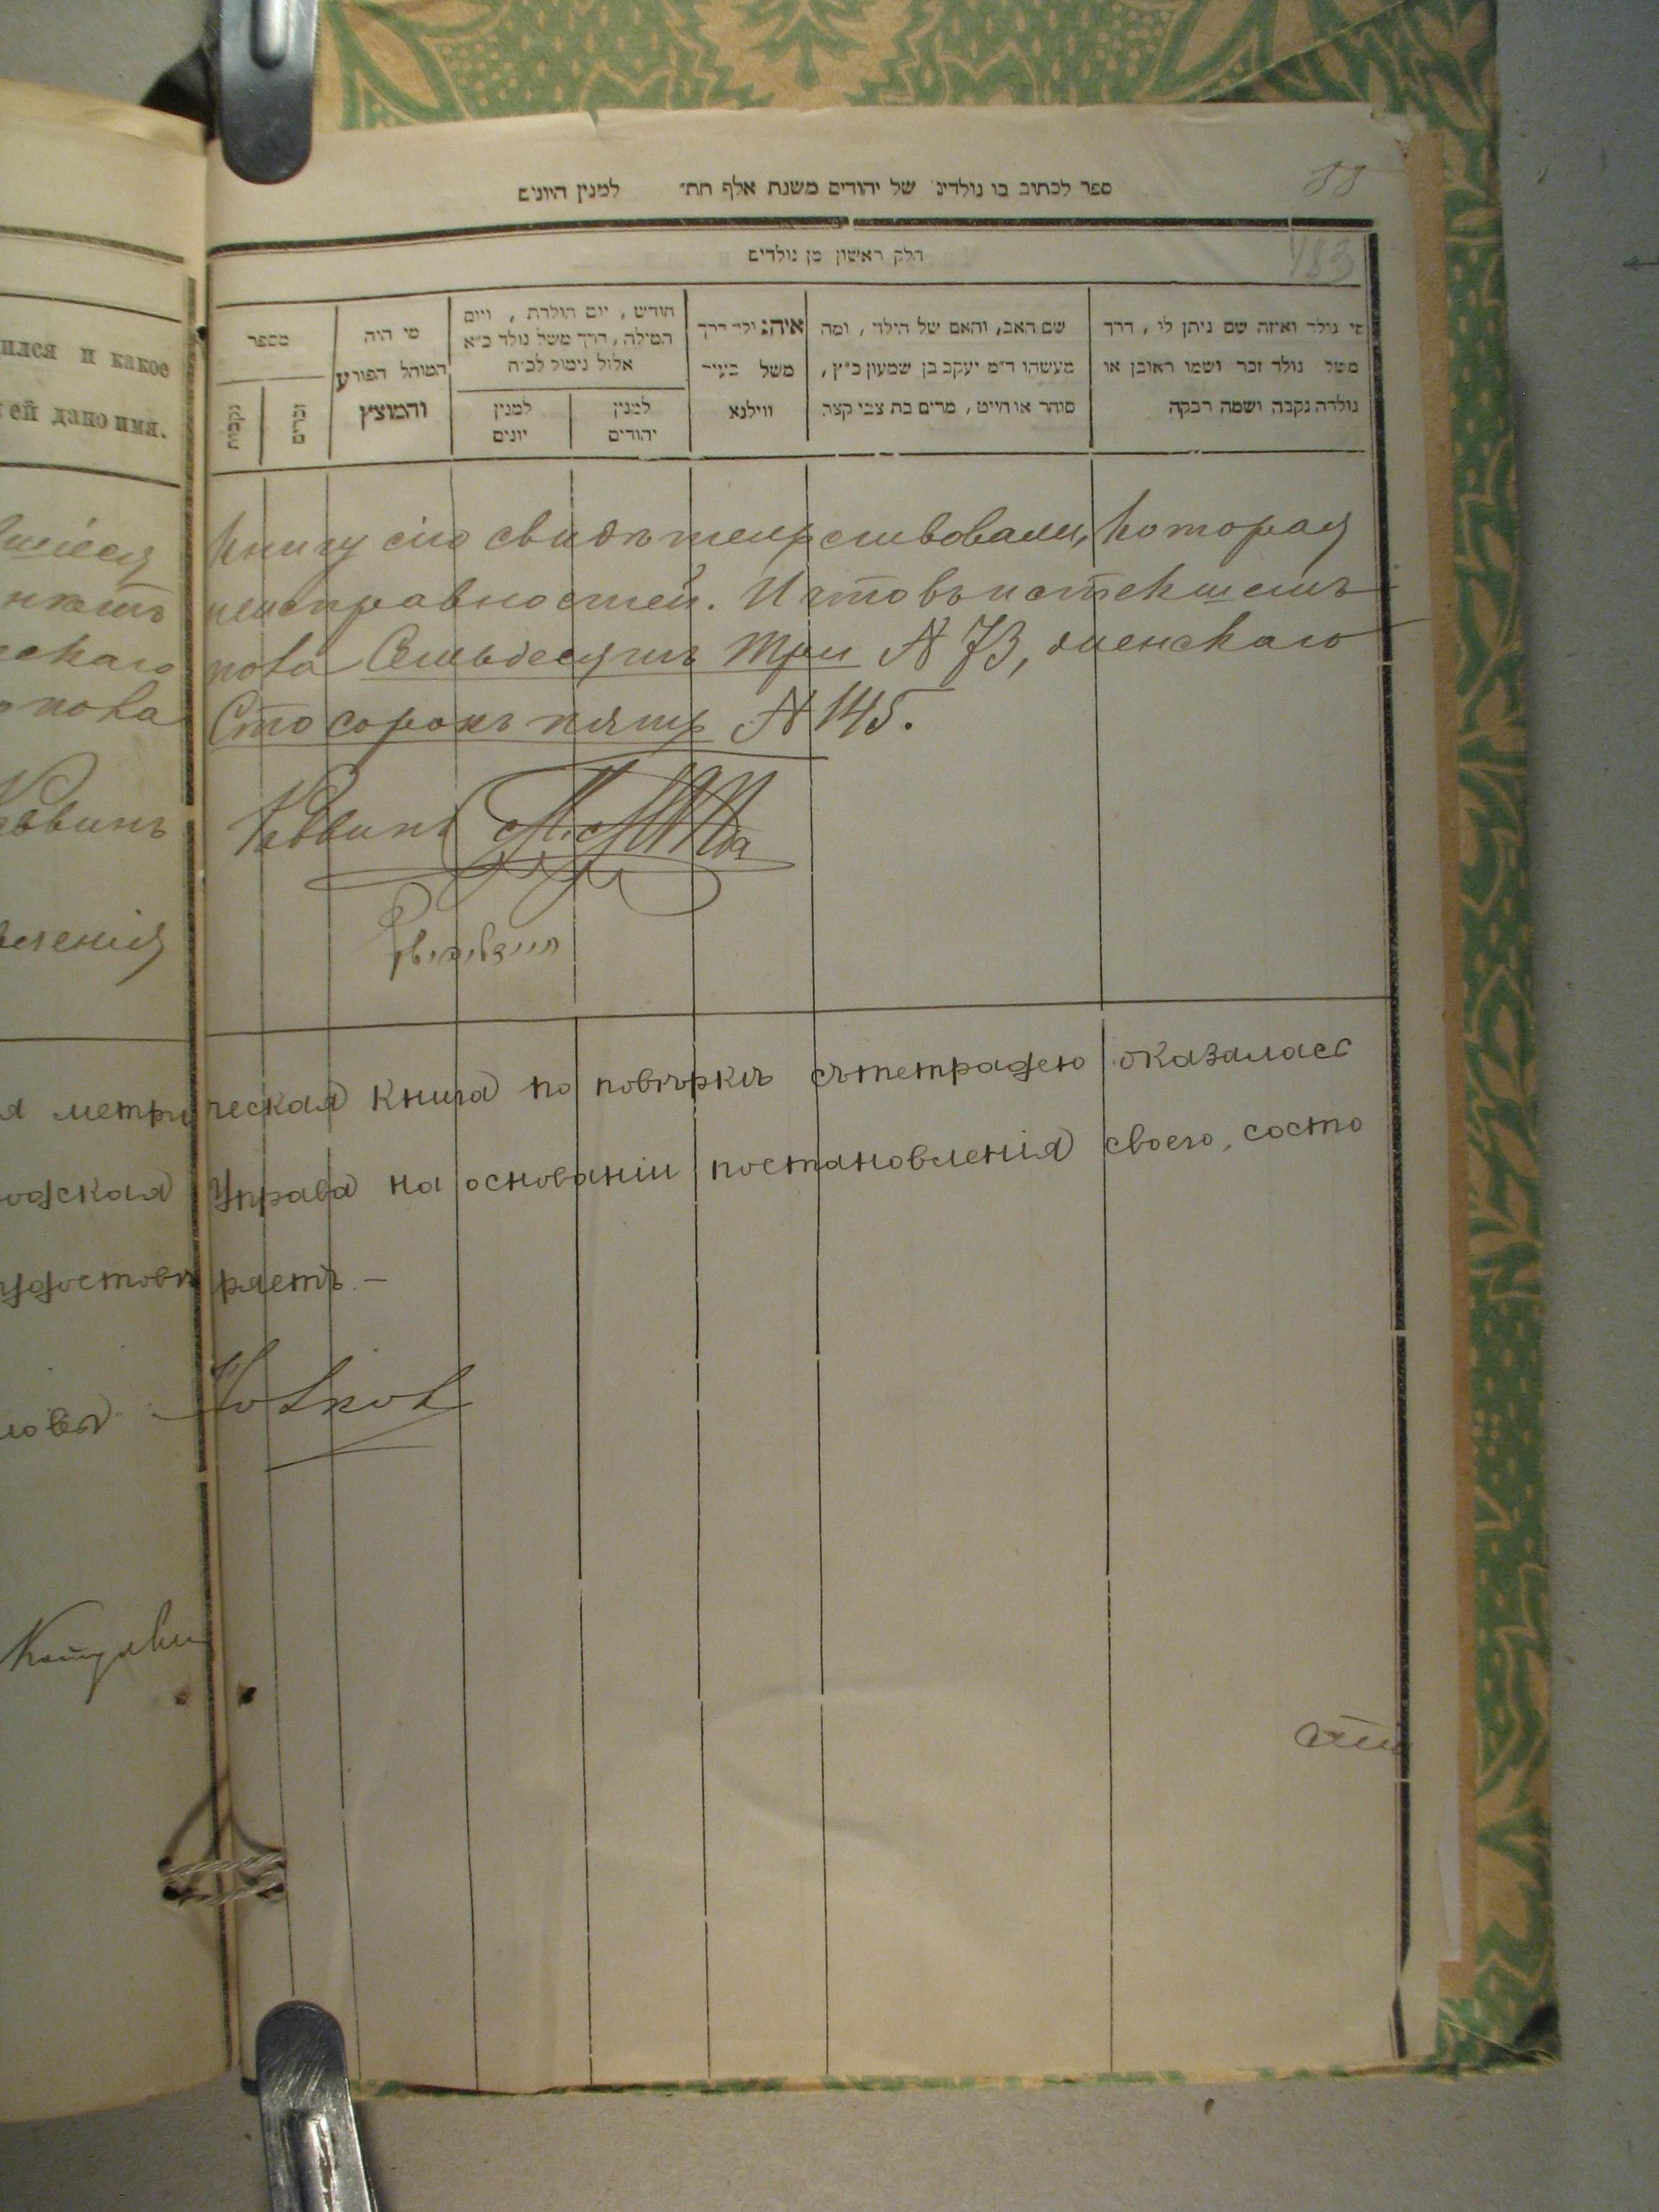 ספר לכתוב בו נולדים של יהודים משנת אלף תת״ למנין היונים
183
חלק ראשון מן נולדים
מי נולד ואיזה שם ניתן לו, דרך
משל נולד זכר ושמו ראובן או
נולדה נקבה ושמה רבקה
שם האב, והאם של הילד, ומה
מעשהו ד״מ יעקב בן שמעון כ״ץ,
סוחר או חייט, מרים בת צבי קצב
איה נולד דרך
משל בעיר
ווילנא
חודש, יום הולדת, ויום
המילה, דרך משל נולד כ״א
אלול נימול לכ״ח
למנין
יהודים
למנין
יונים
מי היה
המוהל הפורע
והמוצץ
מספר
זכרים
נקבות
ился и какое
ей дано имя.
книгу сію свидѣтельствовали, которая
неисправностей. И что въ истекшемъ
скаго пола Семьдесятъ три № 73, женскаго
пола Сто сорокъ пять № 145.
Раввинъ
Раввинъ
я метрическая книга по повѣркѣ съ тетрадею оказалась
одская Управа на основаніи постановленія своего, состо
удостовѣряетъ. –